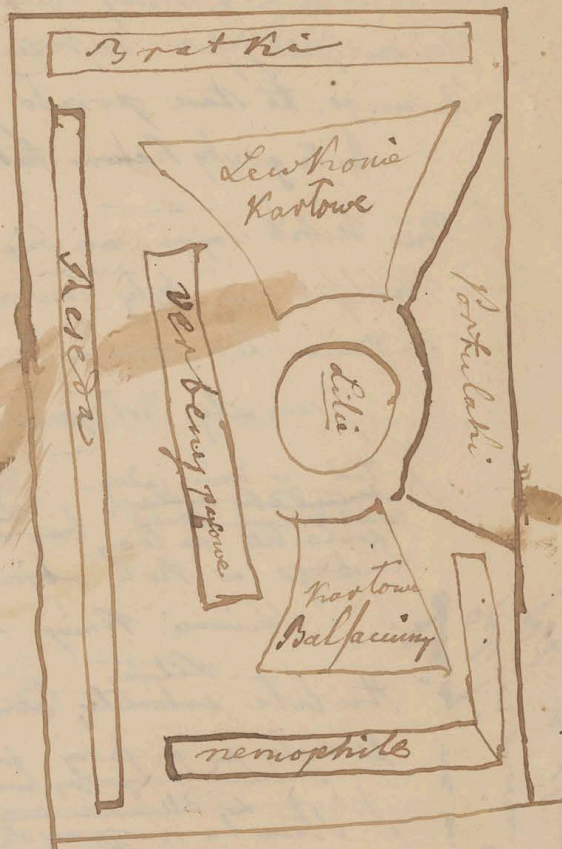 Bratki
Lewkonie
Karłowe
Reseda
Verbeny pąsowe
Lilie
Portulaki
Karłowe
Balsaminy
nemophile